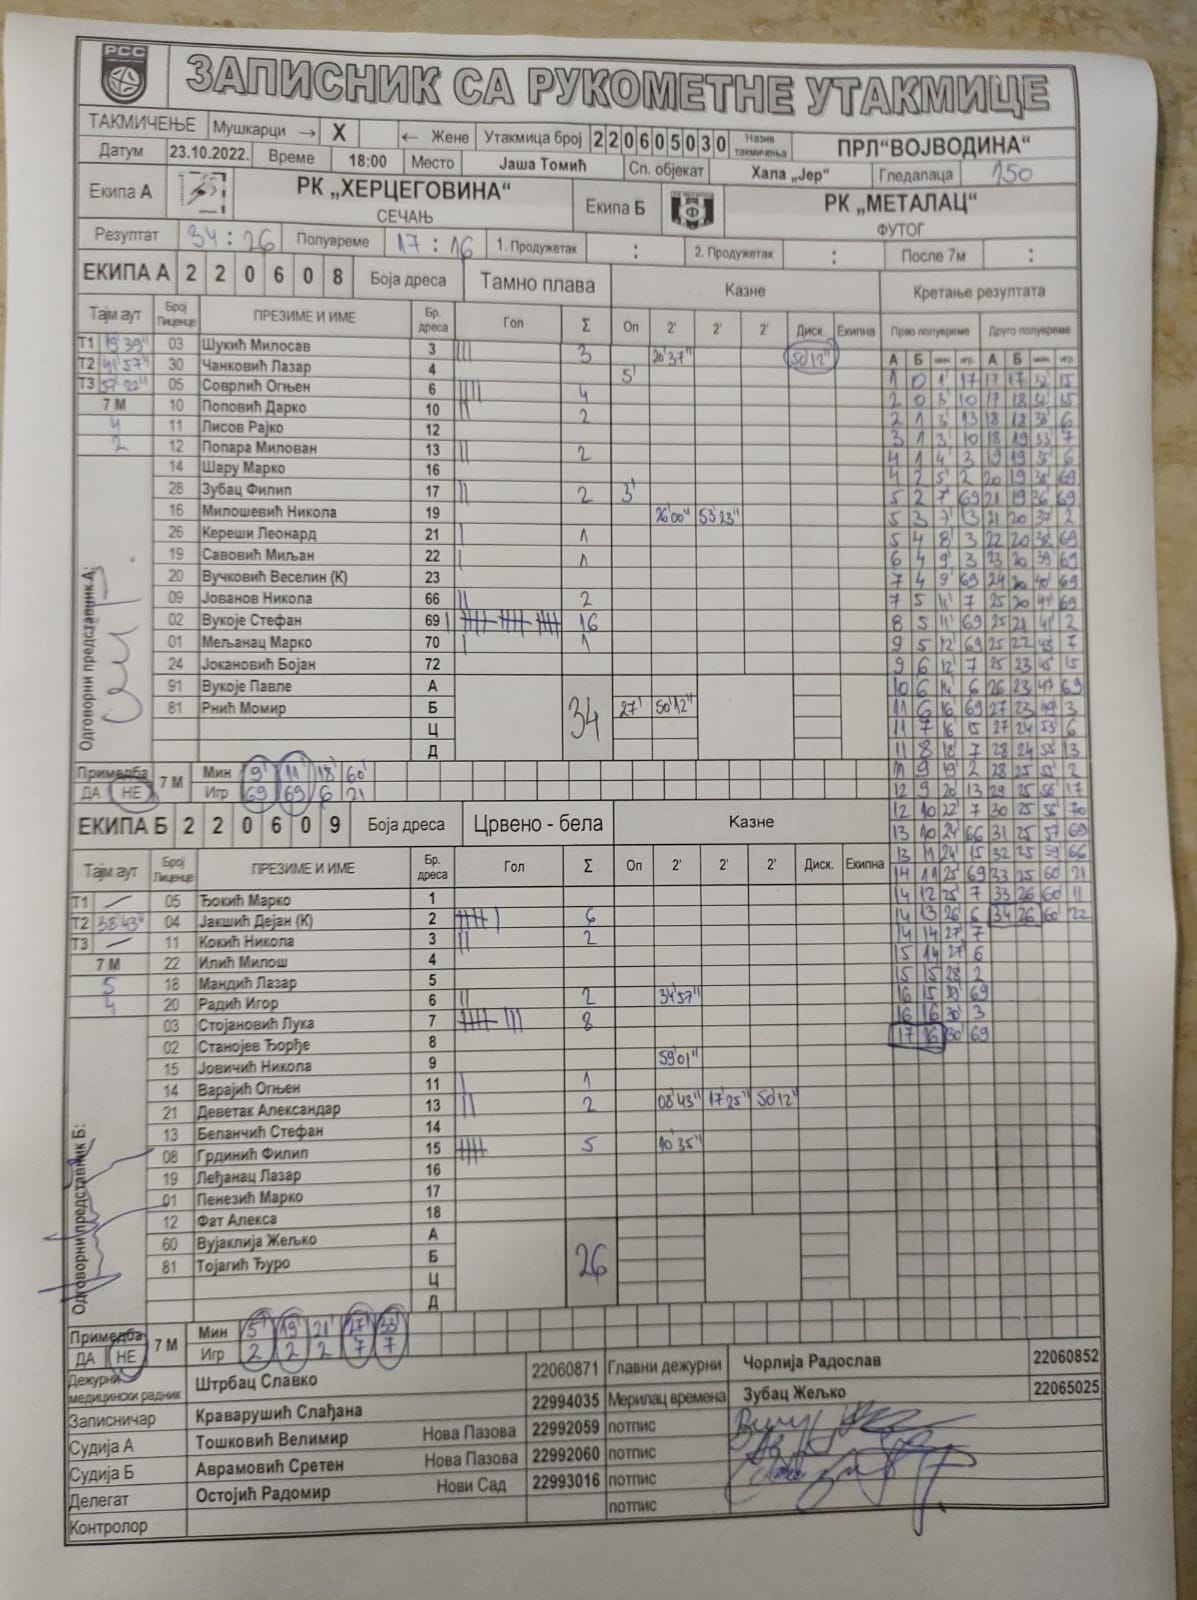 РСС
ЗАПИСНИК СА РУКОМЕТНЕ УТАКМИЦЕ
ТАКМИЧЕЊЕ Мушкарци → X ← Жене Утакмица број 220605030 Назив такмичења ПРЛ"ВОЈВОДИНА"
Датум 23.10.2022. Време 18:00 Место Јаша Томић Сп. објекат Хала „Јер" Гледалаца 150
Екипа А РК „ХЕРЦЕГОВИНА" СЕЧАЊ Екипа Б РК „МЕТАЛАЦ" ФУТОГ
Резултат 34 : 26 Полувреме 17 : 16 1. Продужетак : 2. Продужетак : После 7м :
ЕКИПА А 220608 Боја дреса Тамно плава Казне Кретање резултата
Тајм аут Број Лиценце ПРЕЗИМЕ И ИМЕ Бр. дреса Гол Σ Оп 2' 2' 2' Диск. Екипна Прво полувреме Друго полувреме
А Б мин игр. А Б мин игр.
Т1 19'39" 03 Шукић Милосав 3 III 3 26'37" 50'12"
Т2 41'57" 30 Чанковић Лазар 4 5'
Т3 57'22" 05 Соврлић Огњен 6 IIII 4
7 М 10 Поповић Дарко 10 II 2
4 11 Лисов Рајко 12
2 12 Попара Милован 13 II 2
14 Шару Марко 16
28 Зубац Филип 17 II 2 3'
16 Милошевић Никола 19 26'00" 53'23"
26 Кереши Леонард 21 I 1
19 Савовић Миљан 22 I 1
20 Вучковић Веселин (К) 23
09 Јованов Никола 66 II 2
02 Вукоје Стефан 69 16
01 Мељанац Марко 70 I 1
24 Јокановић Бојан 72
91 Вукоје Павле А
81 Рнић Момир Б 34 27' 50'12"
Ц
Д
Одговорни представник А:
Примедба ДА НЕ 7 М Мин 9' 11' 18' 60'
Игр 69 69 6 21
1 0 1' 17 17 17 32' 15
2 0 3' 10 17 18 32' 15
2 1 3' 13 18 18 33' 6
3 1 3' 10 18 19 33' 7
4 1 4' 3 19 19 35' 6
4 2 5' 2 20 19 35' 69
5 2 7' 69 21 19 36' 69
5 3 7' 13 21 20 37' 2
5 4 8' 3 22 20 38' 69
6 4 9' 3 23 20 39' 69
7 4 9' 69 24 20 40' 69
7 5 11' 7 25 20 41' 69
8 5 11' 69 25 21 41' 2
9 5 12' 69 25 22 43' 7
9 6 12' 7 25 23 45' 15
10 6 14' 6 26 23 47' 69
11 6 16' 69 27 23 49' 3
11 7 16' 15 27 24 53' 6
11 8 18' 7 28 24 55' 13
11 9 19' 2 28 25 55' 2
12 9 20' 13 29 25 56' 17
12 10 22' 7 30 25 56' 70
13 10 24' 66 31 25 57' 69
13 11 24' 15 32 25 59' 66
14 11 25' 69 33 25 60' 21
14 12 25' 7 33 26 60' 11
14 13 26' 6 34 26 60' 22
14 14 27' 7
15 14 27' 6
15 15 28' 2
16 15 29' 69
16 16 30' 3
17 16 30' 69
ЕКИПА Б 220609 Боја дреса Црвено - бела Казне
Тајм аут Број Лиценце ПРЕЗИМЕ И ИМЕ Бр. дреса Гол Σ Оп 2' 2' 2' Диск. Екипна
Т1 — 05 Ђокић Марко 1
Т2 38'43" 04 Јакшић Дејан (К) 2 6
Т3 — 11 Кокић Никола 3 II 2
7 М 22 Илић Милош 4
5 18 Мандић Лазар 5
4 20 Радић Игор 6 II 2 34'57"
03 Стојановић Лука 7 8
02 Станојев Ђорђе 8
15 Јовичић Никола 9 59'01"
14 Варајић Огњен 11 I 1
21 Деветак Александар 13 II 2 08'43" 17'25" 50'12"
13 Беланчић Стефан 14
08 Грдинић Филип 15 5 10'35"
19 Леђанац Лазар 16
01 Пенезић Марко 17
12 Фат Алекса 18
60 Вујаклија Жељко А
81 Тојагић Ђуро Б 26
Ц
Д
Одговорни представник Б:
Примедба ДА НЕ 7 М Мин 5' 19' 21' 27' 33'
Игр 2 2 2 7 7
Дежурни медицински радник Штрбац Славко 22060871 Главни дежурни Чорлија Радослав 22060852
Записничар Краварушић Слађана 22994035 Мерилац времена Зубац Жељко 22065025
Судија А Тошковић Велимир Нова Пазова 22992059 потпис
Судија Б Аврамовић Сретен Нова Пазова 22992060 потпис
Делегат Остојић Радомир Нови Сад 22993016 потпис
Контролор потпис